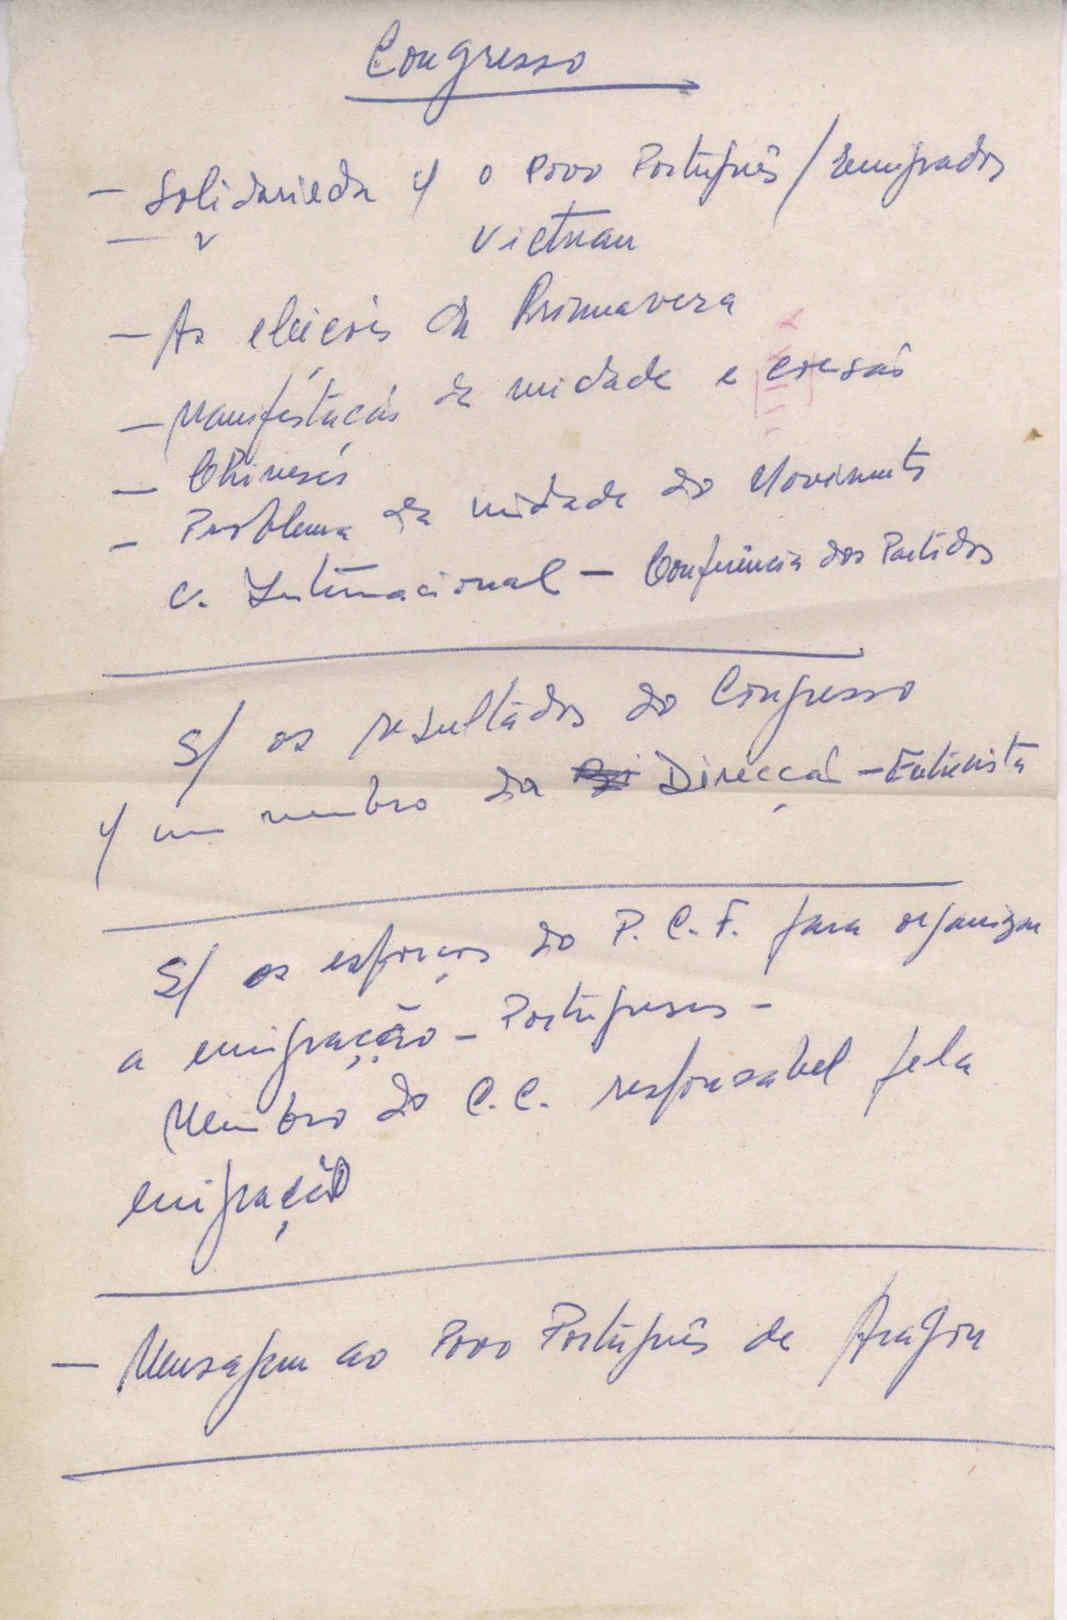 Congresso
- Solidariedade c/ o Povo Português / emigrados
- " Vietnam
- As eleições da Primavera
- Manifestação de unidade e coesão
- Chineses
- Problema da unidade do Movimento
C. Internacional - Conferência dos Partidos
S/ os resultados do Congresso
c/ um membro da Direcção - Entrevista
S/ os esforços do P.C.F. para organizar
a emigração - Portugueses -
Membro do C.C. responsabel pela
emigração
- Mensagem ao Povo Português de Aragon